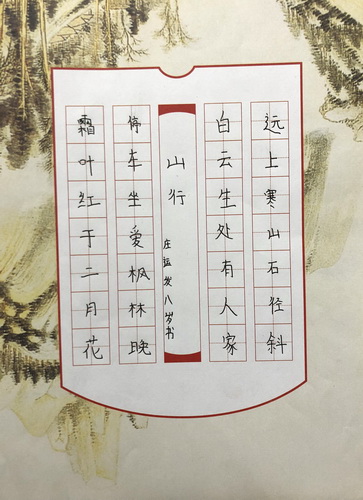 远上寒山石径斜
白云生处有人家
山行
庄益发八岁书
停车坐爱枫林晚
霜叶红于二月花